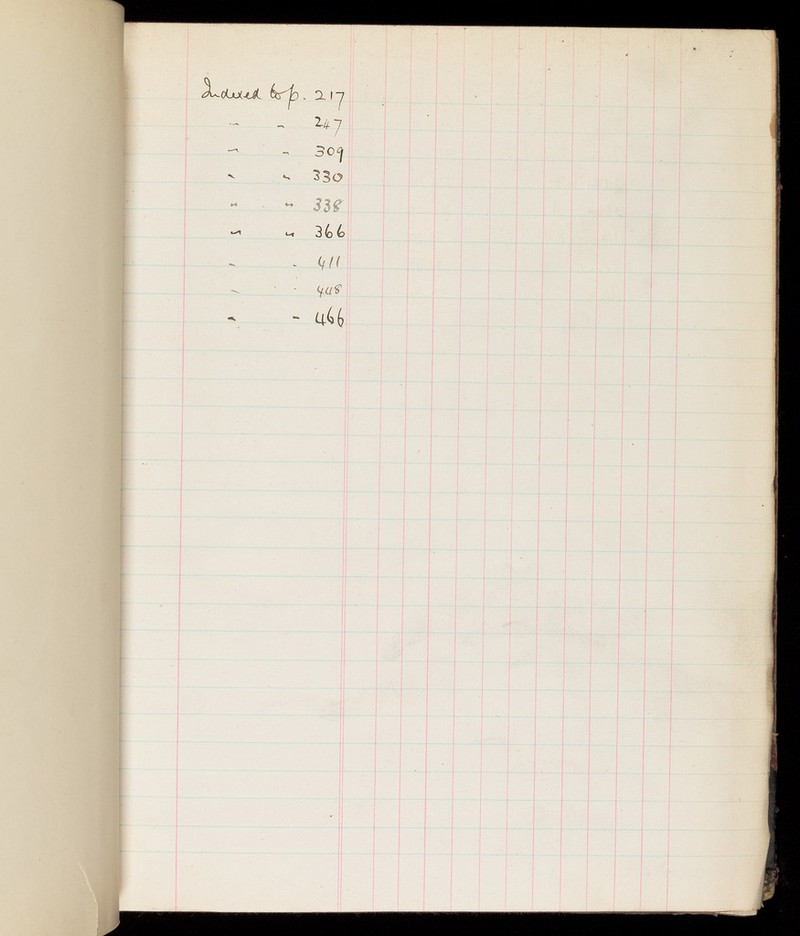 Indexed to p. 217
" " 247
" " 309
" " 330
" " 338
" " 366
" " 411
" " 448
" " 466